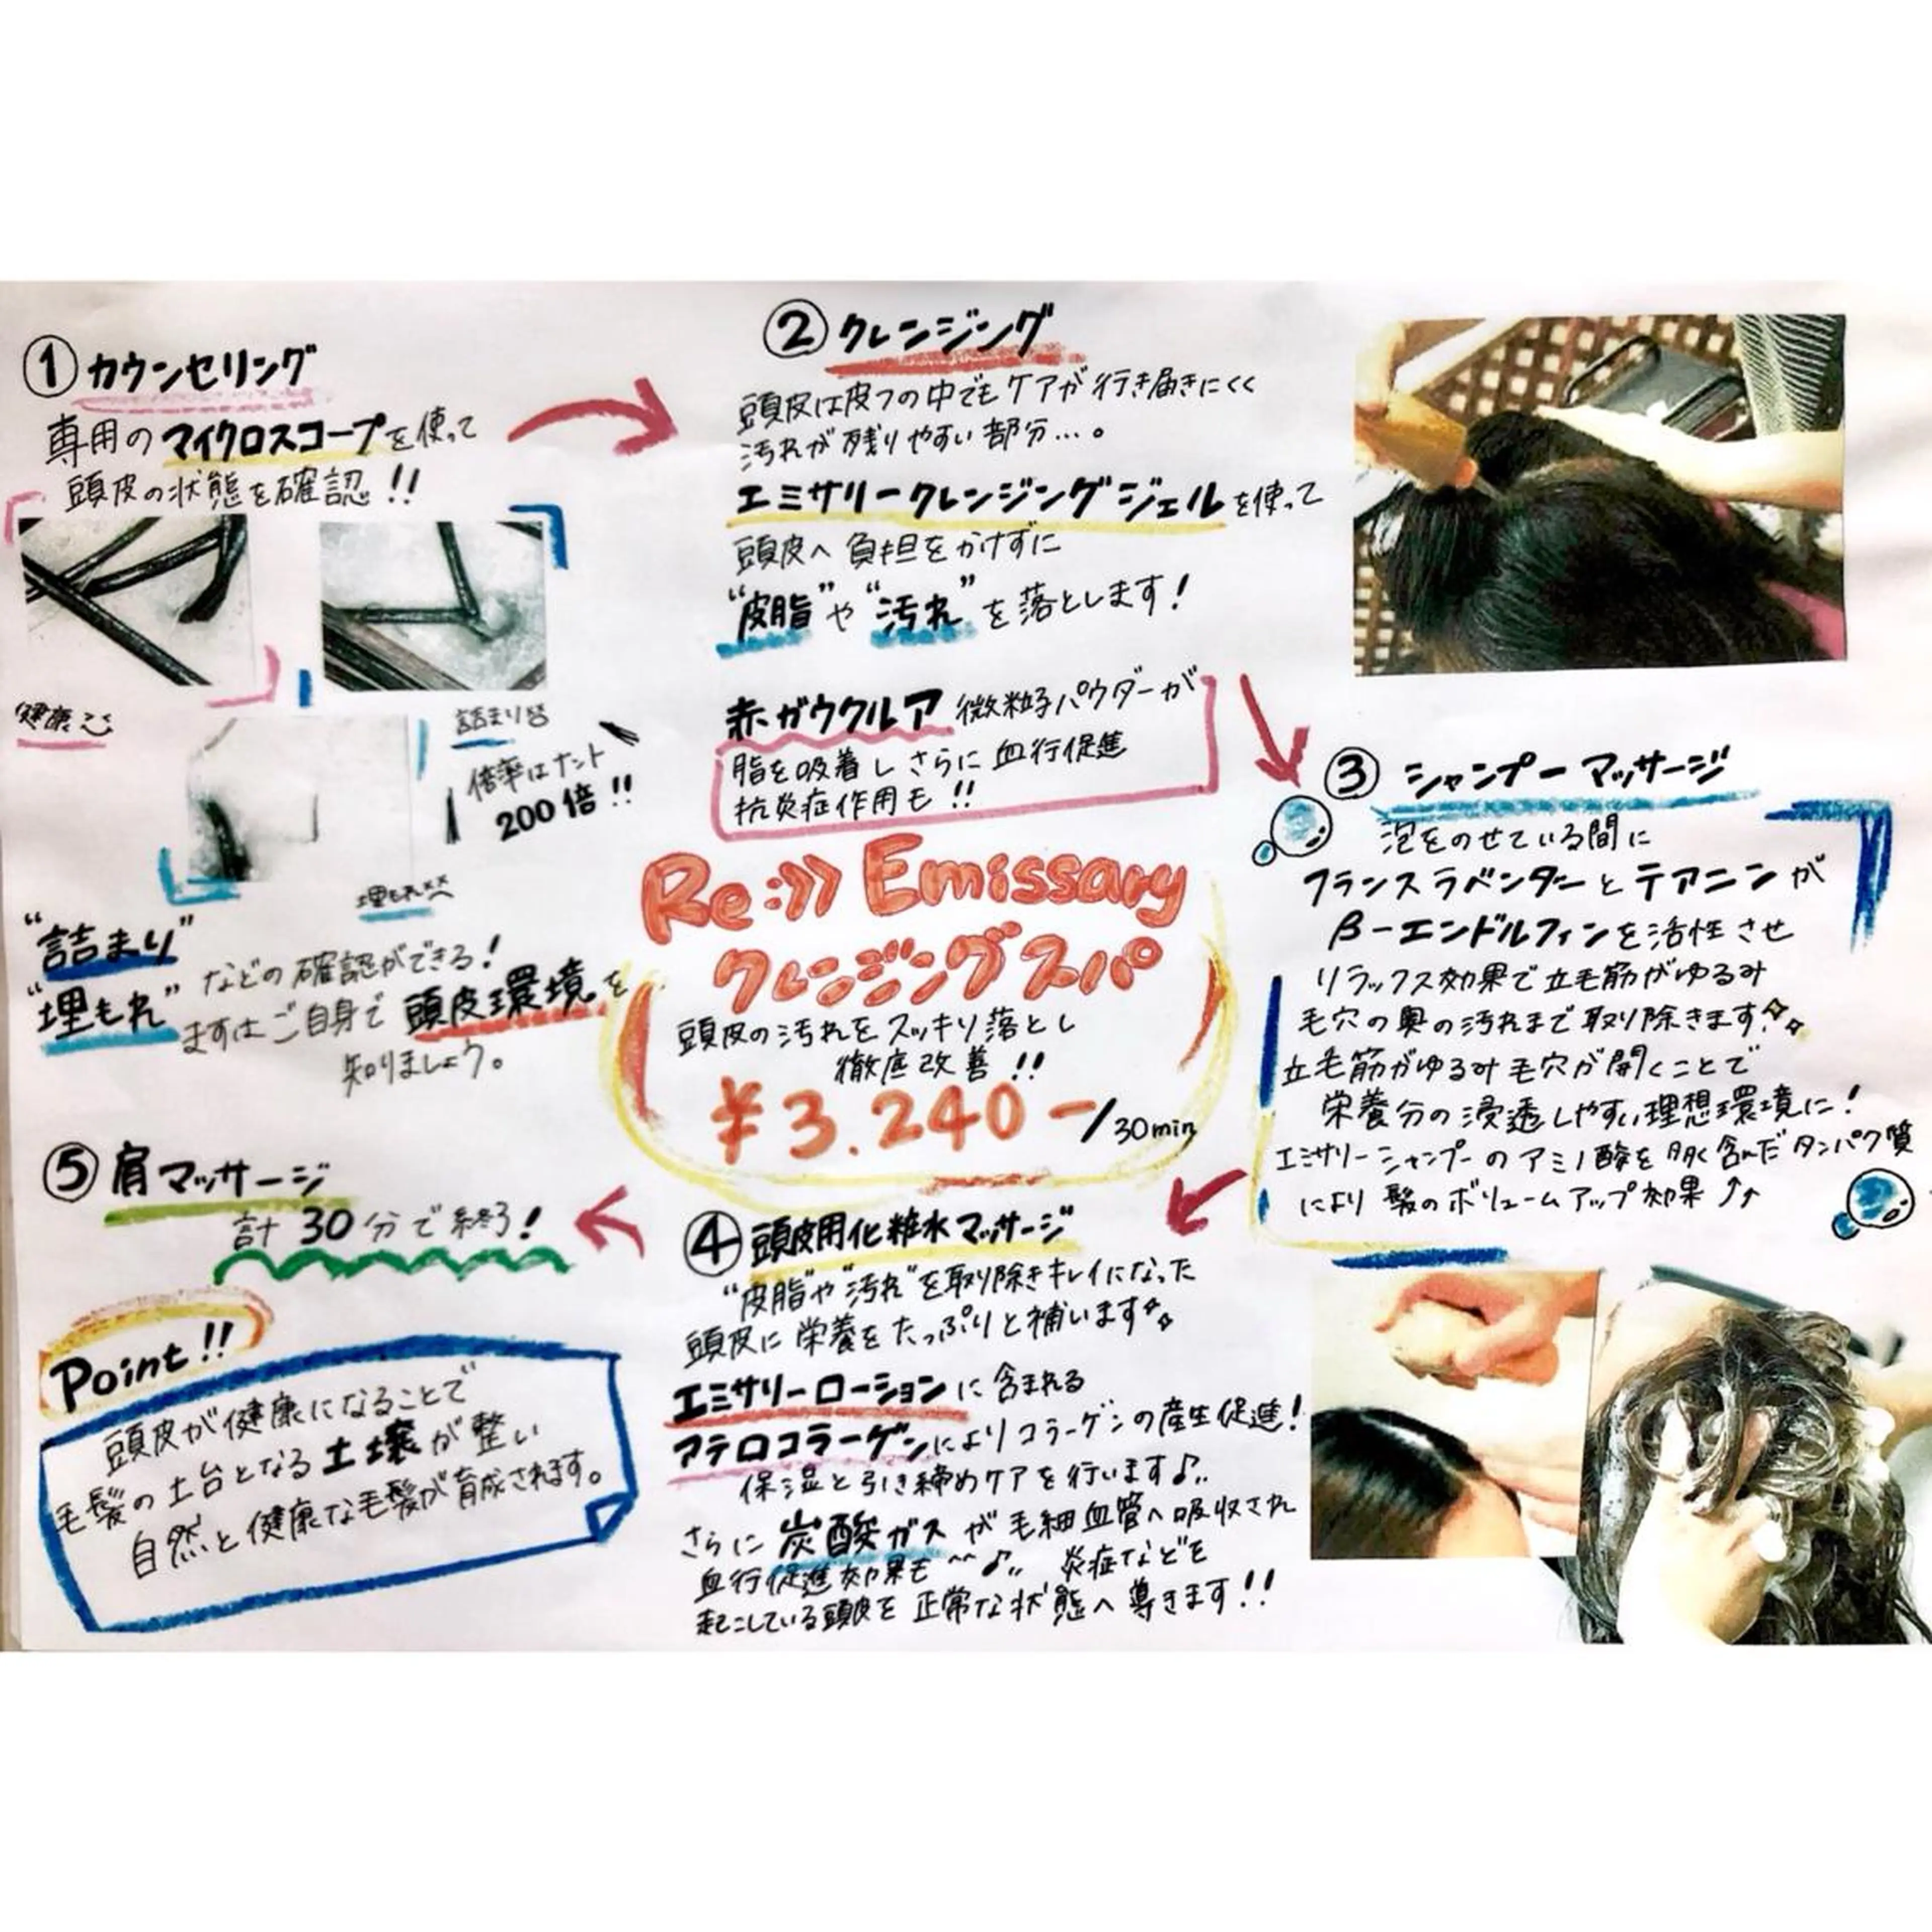 ① カウンセリング
専用のマイクロスコープを使って
頭皮の状態を確認!!
健康
詰まり
倍率はナント
200倍!!
埋もれ
"詰まり"
"埋もれ"
などの確認ができる!
まずはご自身で頭皮環境を
知りましょう。
② クレンジング
頭皮は皮フの中でもケアが行き届きにくく
汚れが残りやすい部分…。
エミサリークレンジングジェルを使って
頭皮へ負担をかけずに
"皮脂"や"汚れ"を落とします!
赤ガウクルア微粒子パウダーが
脂を吸着しさらに血行促進
抗炎症作用も!!
Re:》》 Emissary
クレンジングスパ
頭皮の汚れをスッキリ落とし
徹底改善!!
¥3.240-/30min
③ シャンプーマッサージ
泡をのせている間に
フランスラベンダーとテアニンが
β-エンドルフィンを活性させ
リラックス効果で立毛筋がゆるみ
毛穴の奥の汚れまで取り除きます!
立毛筋がゆるみ毛穴が開くことで
栄養分の浸透しやすい理想環境に!
エミサリーシャンプーのアミノ酸を多く含んだタンパク質
により髪のボリュームアップ効果↑↑
④ 頭皮用化粧水マッサージ
"皮脂"や"汚れ"を取り除きキレイになった
頭皮に栄養をたっぷりと補います
エミサリーローションに含まれる
アテロコラーゲンによりコラーゲンの産生促進!
保湿と引き締めケアを行います♪
さらに炭酸ガスが毛細血管へ吸収され
血行促進効果も^^♪ 炎症などを
起こしている頭皮を正常な状態へ導きます!!
⑤ 肩マッサージ
計30分で終了!
Point!!
頭皮が健康になることで
毛髪の土台となる土壌が整い
自然と健康な毛髪が育成されます。